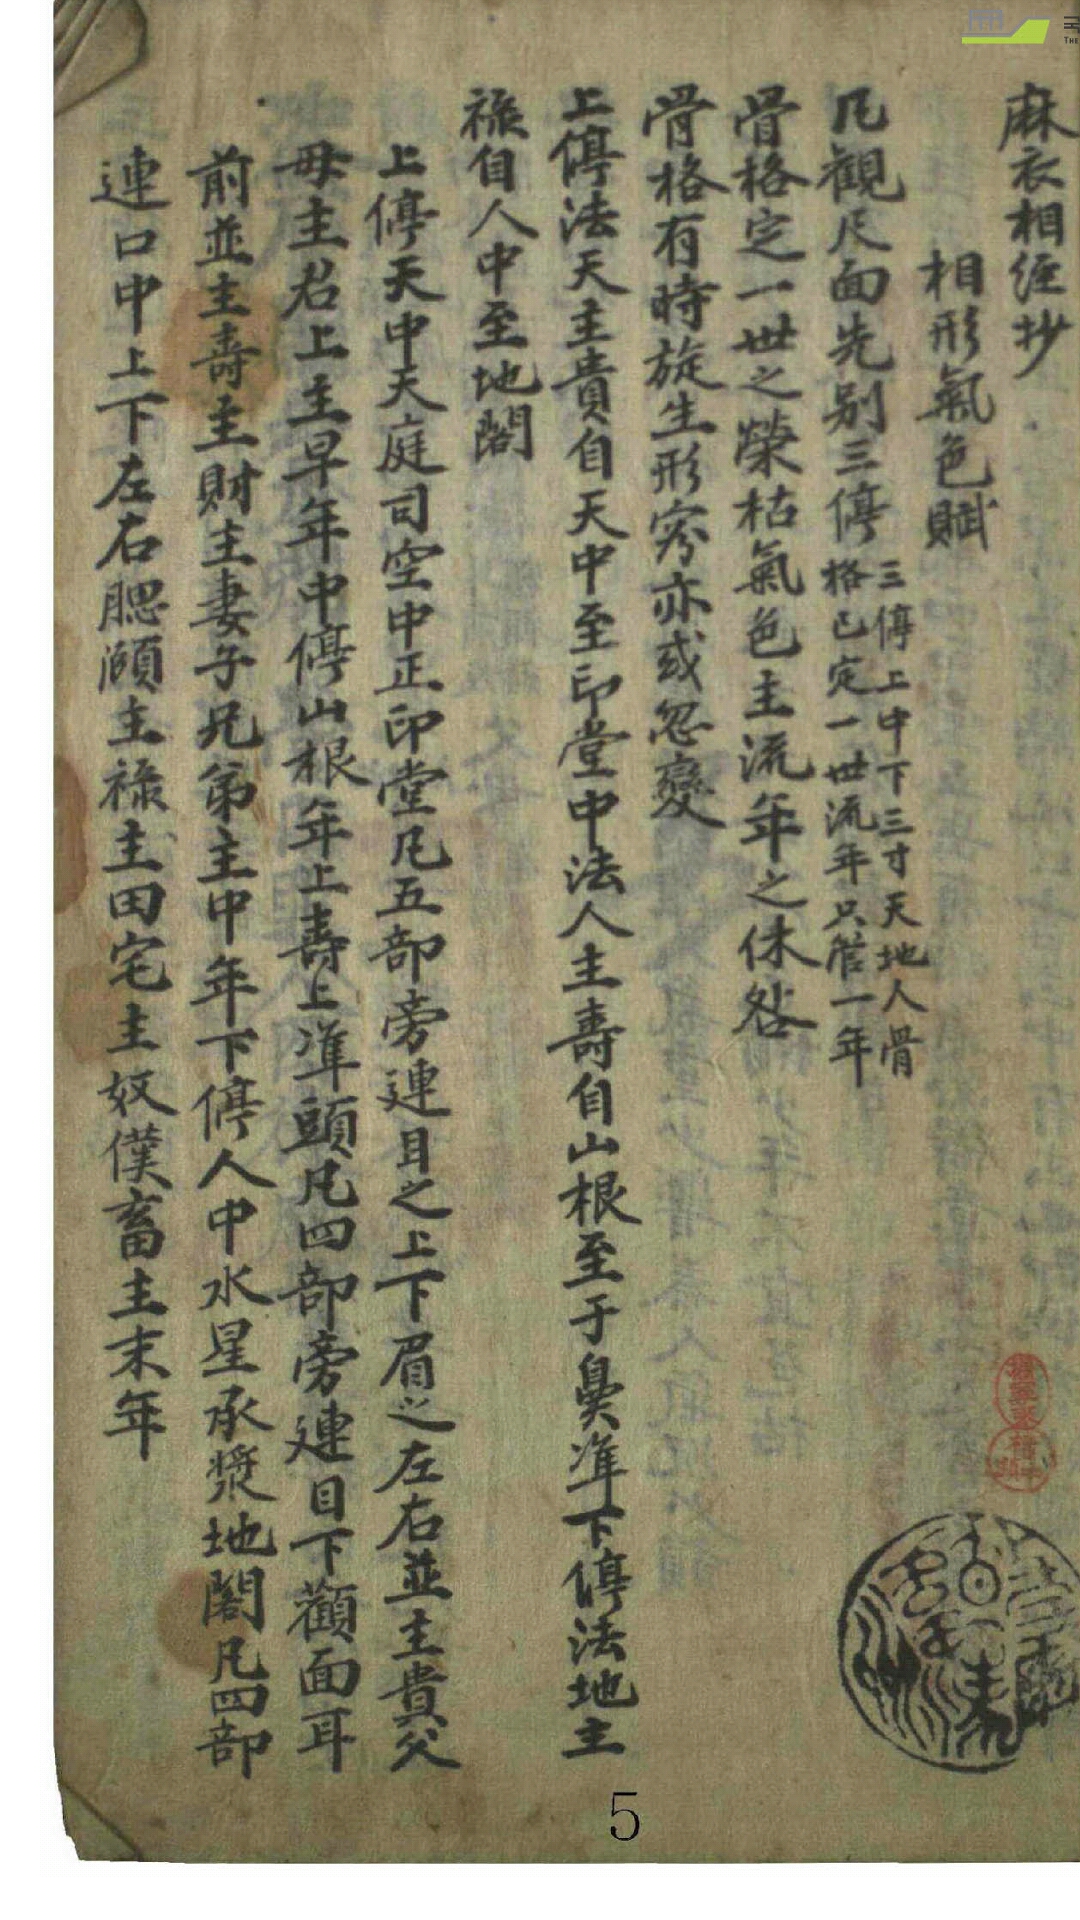 麻衣相經抄
相形氣色賦
凡觀尺面先别三停
三停上中下三寸天地人骨
格已定一世流年只管一年
骨格定一世之榮枯氣色主流年之休咎
骨格有時旋生形容亦或忽變
上停法天主貴自天中至印堂中法人主壽自山根至于鼻準下停法地主
祿自人中至地閣
上停天中天庭司空中正印堂凡五部旁連目之上下眉之左右並主貴父
母主君上主早年中停山根年上壽上準頭凡四部旁連目下顴面耳
前並主壽主財主妻子兄弟主中年下停人中水星承漿地閣凡四部
連口中上下左右腮頤主祿主田宅主奴僕畜主末年
5
THE